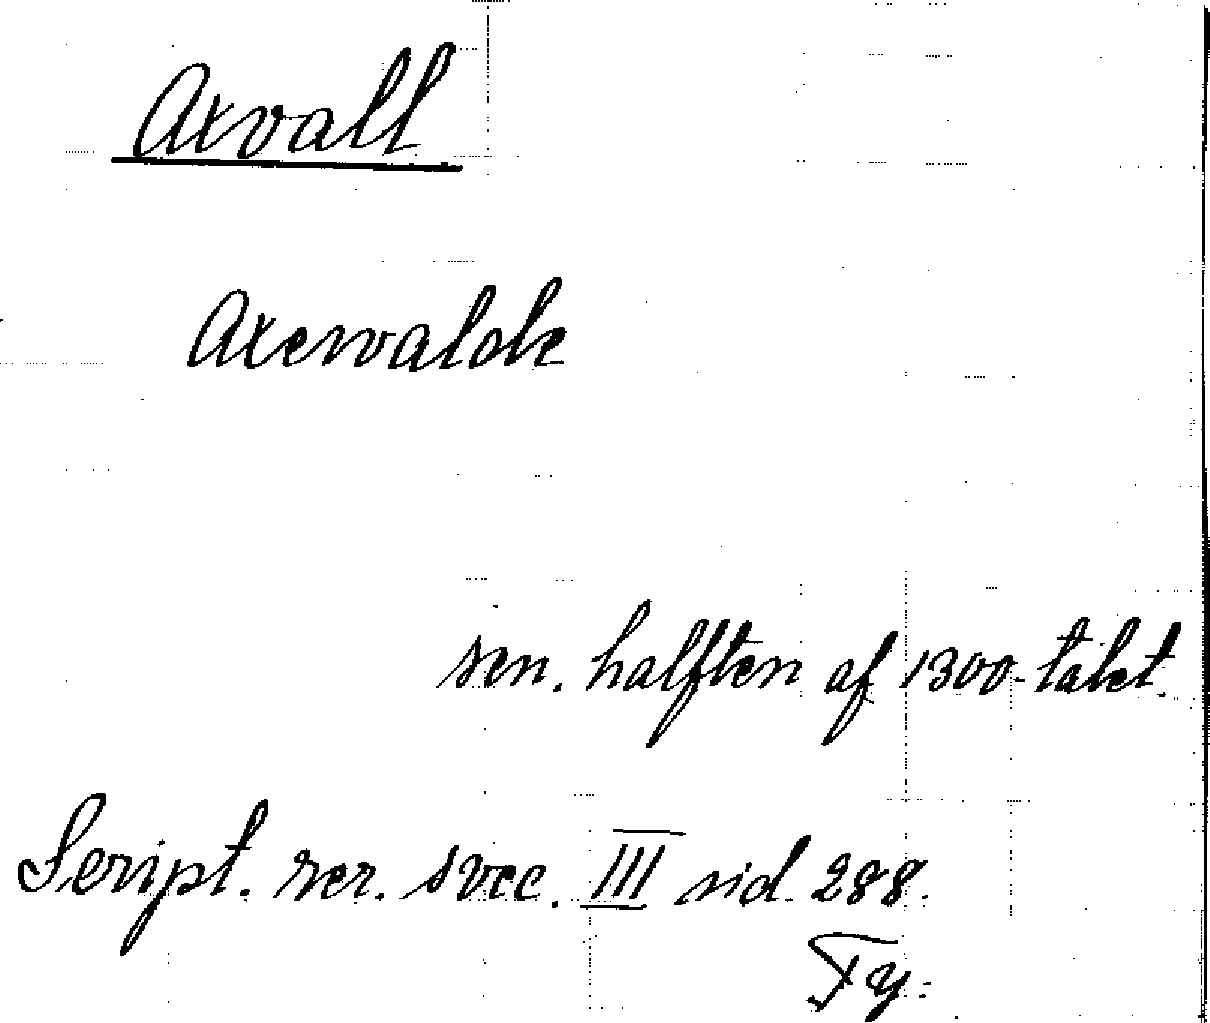 Axvall
Axewalde
sen. halften af 1300-talet.
Script. rer. svec. III sid. 288.
Ty: